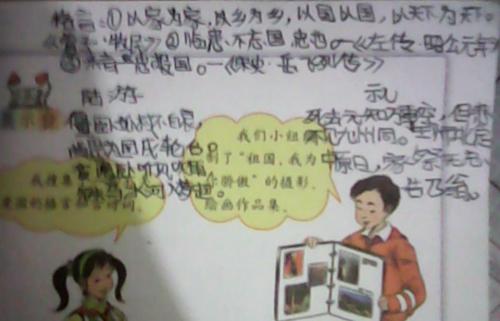 格言:①以家为家,以乡为乡,以国以国,以天下为天下。
《管子·牧民》②临患不忘国忠也。—《左传·昭公元年
③ 忠报国。—《宋史·岳飞列传》
陆游
示儿
僵卧孤村不自哀,
死去元知万事空,但悲
尚思为国戍轮台。
不见九州同。王师北定
夜阑卧听风吹雨
中原日,家祭无忘
铁马冰河入梦
告乃翁。
我们小组
制了“祖国,我为
你骄傲”的摄影、
绘画作品集。
我搜集
爱国的格言